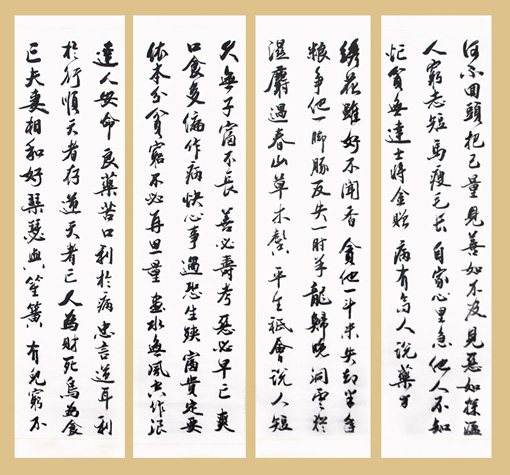 達人安命良藥苦口利於病忠言逆耳利
於行順天者存逆天者亡人為財死鳥為食
亡夫妻相和好琴瑟與笙簧有兒窮不
久無子富不長善必壽考惡必早亡爽
口食多偏作病快心事過恐生殃富貴定要
依本分貧窮不必再思量畫水無風空作浪
繡花雖好不聞香貪他一斗米失卻半年
糧爭他一腳豚反失一肘羊龍歸晚洞雲猶
濕麝過春山草木馨平生祗會說人短
何不回頭把己量見善如不及見惡如探湯
人窮志短馬瘦毛長自家心里急他人不知
忙貧無達士將金贈病有高人說藥方